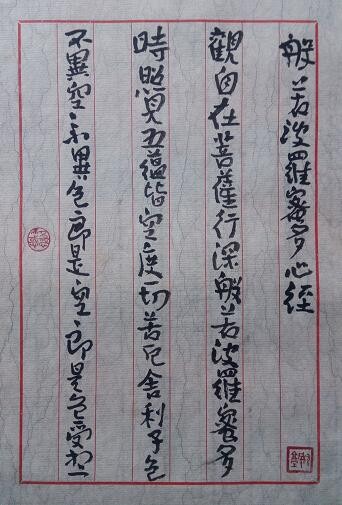 般若波羅蜜多心經
觀自在菩薩行深般若波羅蜜多
時照見五蘊皆空度一切苦厄舍利子色
不異空々不異色即是空々即是色受想